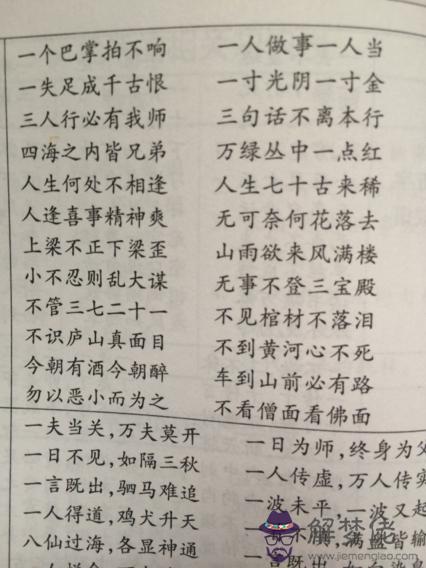 一个巴掌拍不响
一失足成千古恨
三人行必有我师
四海之内皆兄弟
人生何处不相逢
人逢喜事精神爽
上梁不正下梁歪
小不忍则乱大谋
不管三七二十一
不识庐山真面目
今朝有酒今朝醉
勿以恶小而为之
一人做事一人当
一寸光阴一寸金
三句话不离本行
万绿丛中一点红
人生七十古来稀
无可奈何花落去
山雨欲来风满楼
无事不登三宝殿
不见棺材不落泪
不到黄河心不死
车到山前必有路
不看僧面看佛面
一夫当关，万夫莫开
一日不见，如隔三秋
一言既出，驷马难追
一人得道，鸡犬升天
八仙过海，各显神通
一日为师，终身为父
一人传虚，万人传实
一波未平，一波又起
www.jiemenglao.com